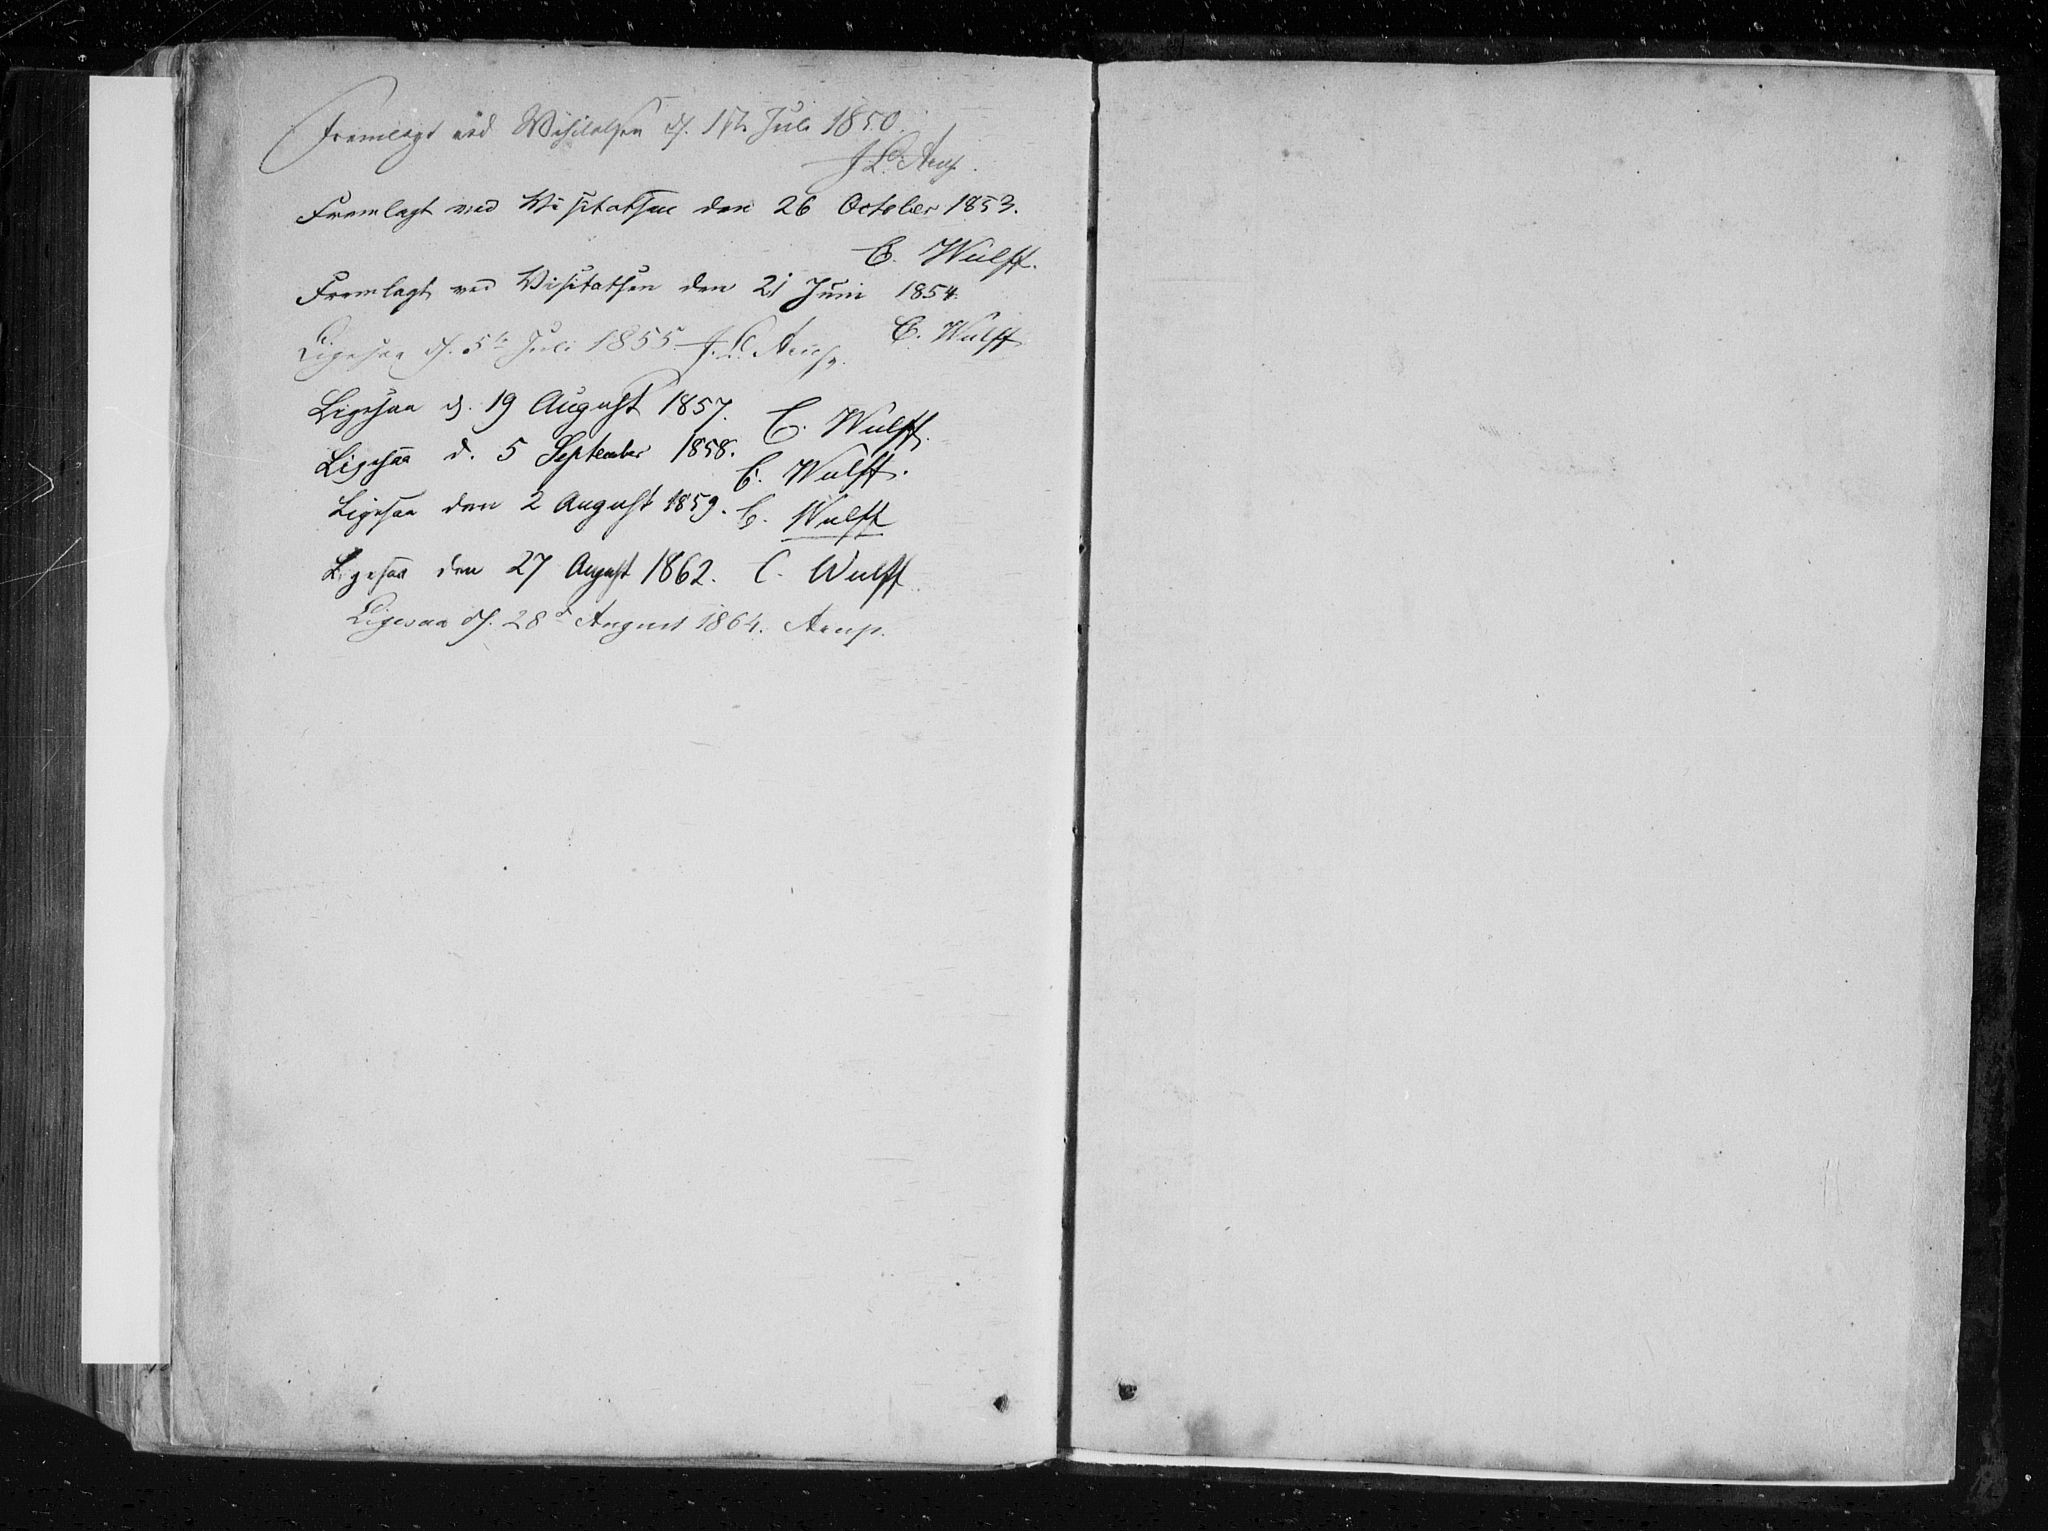 Fremlagt ved Visitatsen d. Juli 1850.
J. L. Arup.
Fremlagt ved Visitatsen den 26 October 1853.
C. Wulff.
Fremlagt ved Visitatsen den 21 Juni 1854.
C. Wulff
Ligesaa d. 5te Juli 1855. J. L. Arup.
Ligesaa d. 19 August 1857. C. Wulff.
Ligesaa d. 5 September 1858. C. Wulff.
Ligesaa den 2 August 1859. C. Wulff
Ligesaa den 27 August 1862. C. Wulff.
Ligesaa d. 28d August 1864. Arup.